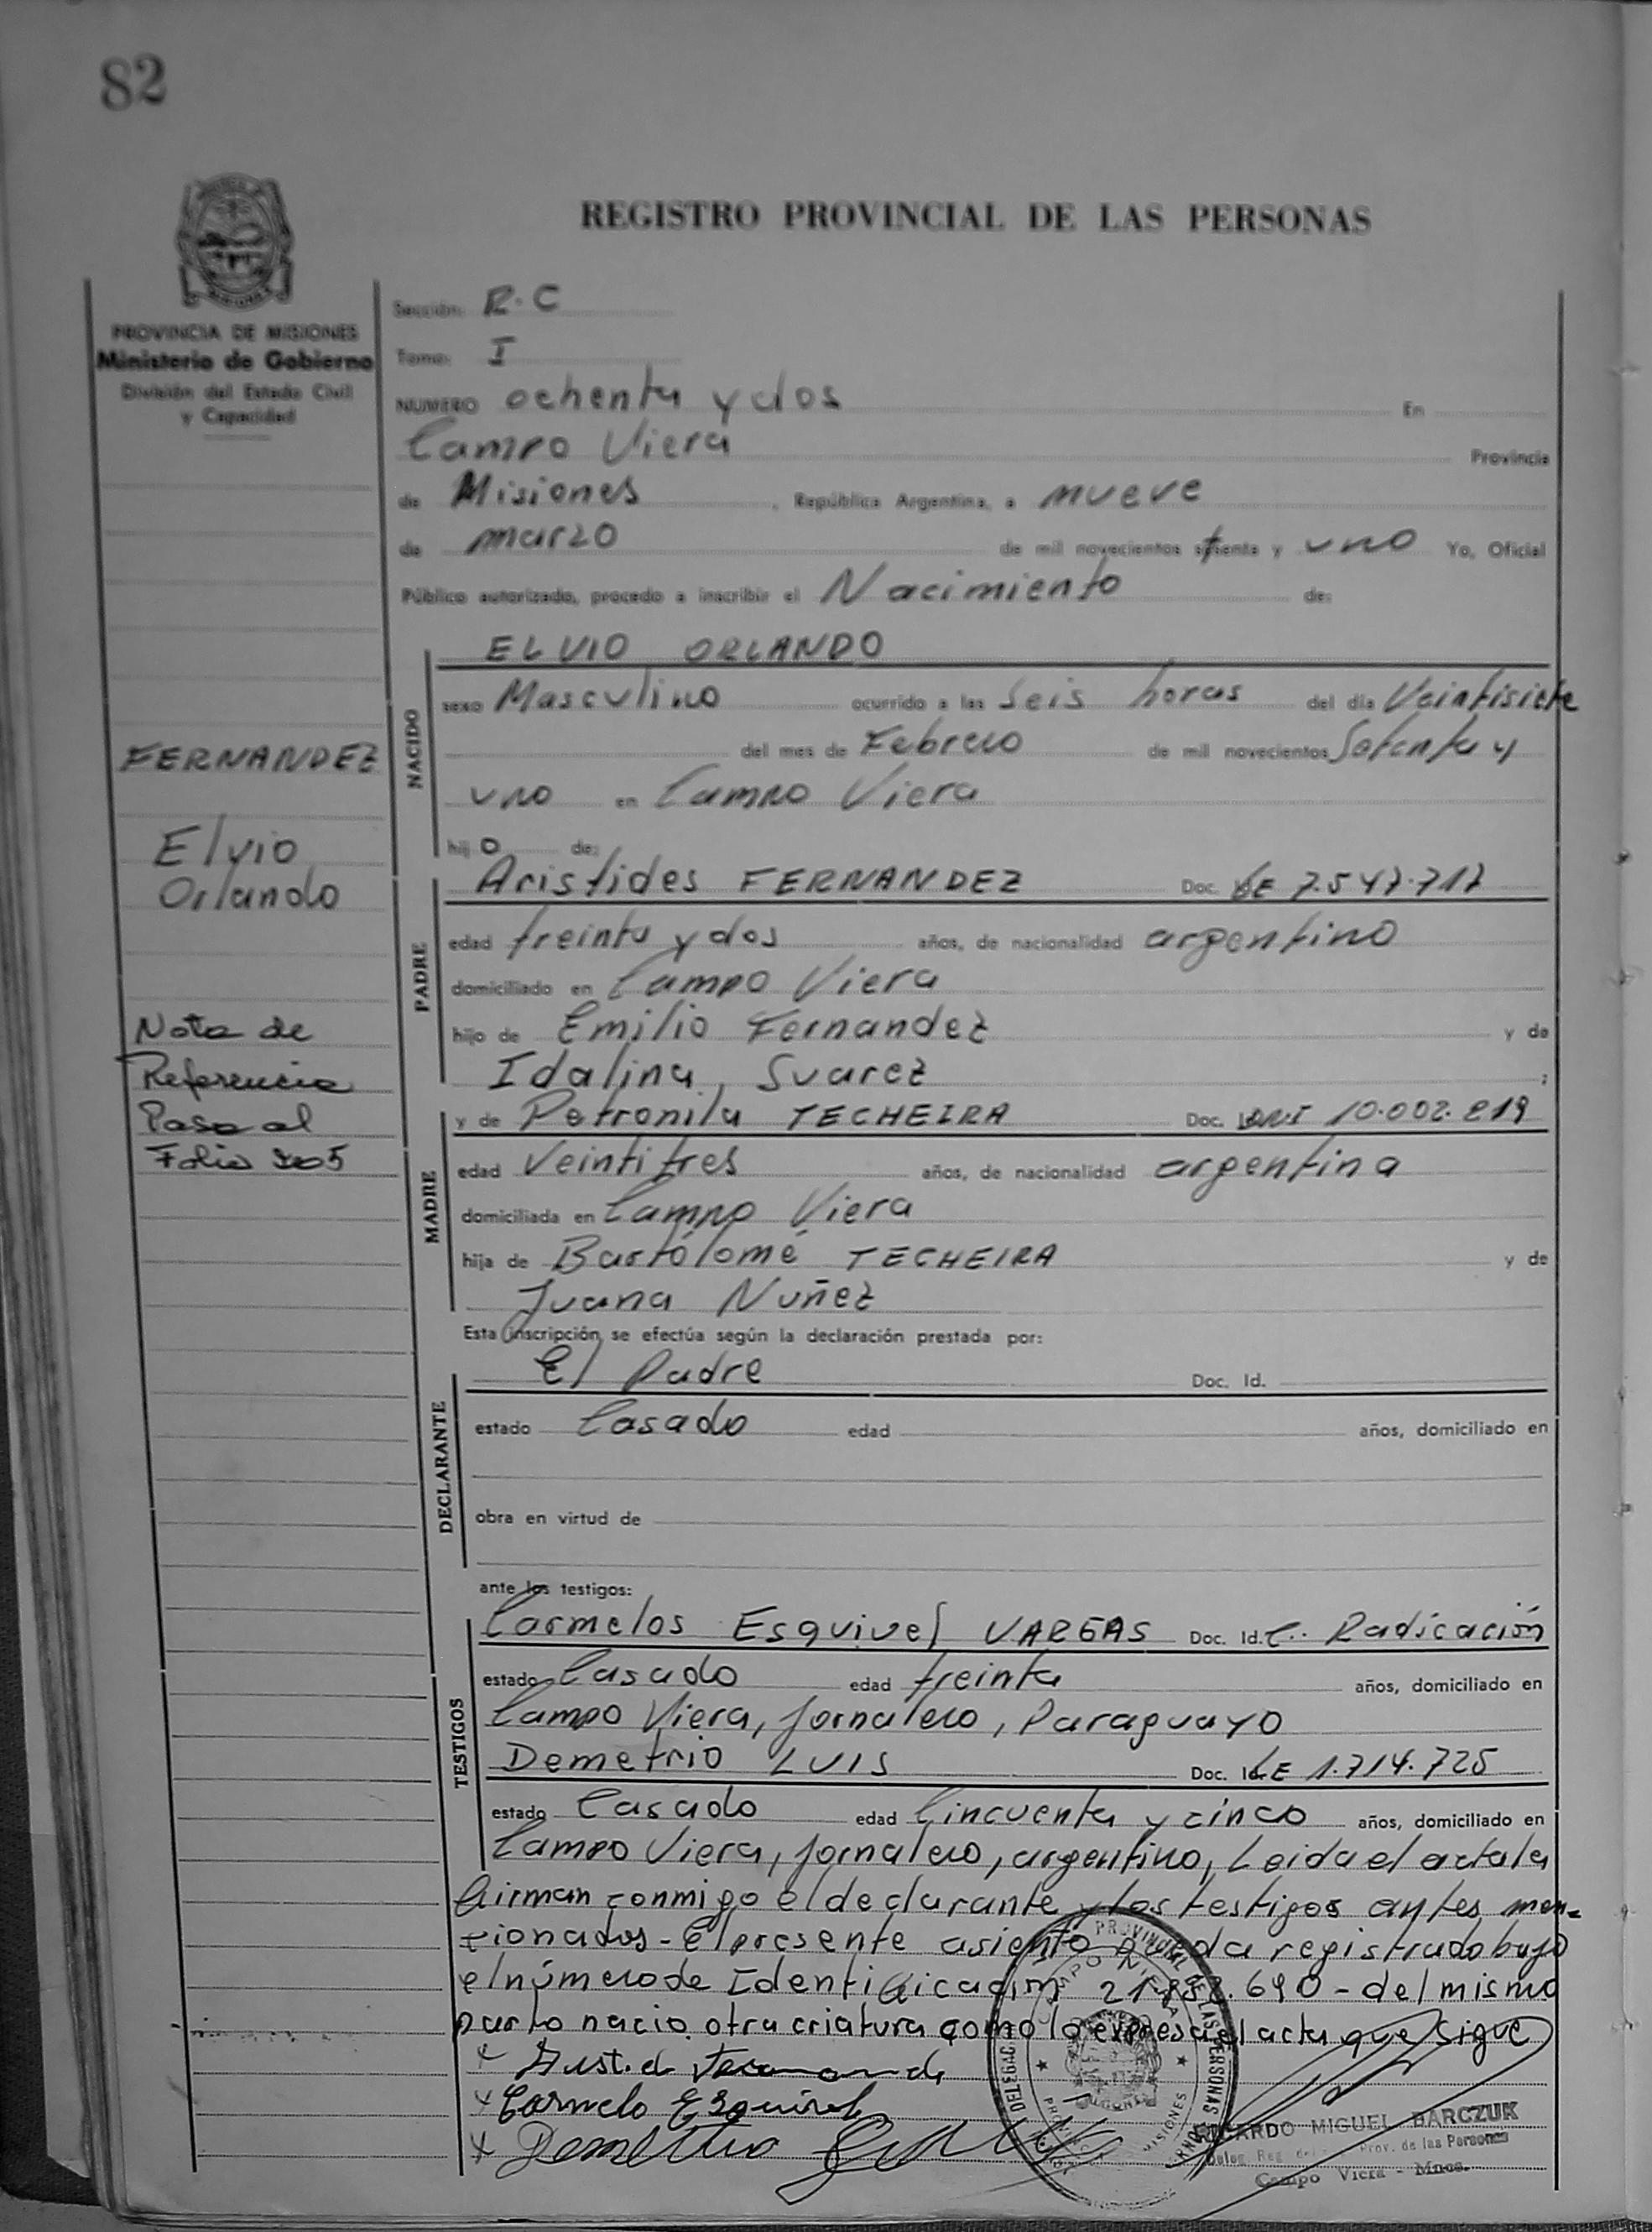 82
REGISTRO PROVINCIAL DE LAS PERSONAS
PROVINCIA DE MISIONES
Ministerio de Gobierno
División del Estado Civil
y Capacidad
Sección: R.C
Tomo: I
NUMERO ochenta y dos En
Campo Viera Provincia
de Misiones, República Argentina, a nueve
de marzo de mil novecientos setenta y uno Yo, Oficial
Público autorizado, procedo a inscribir el Nacimiento de:
FERNANDEZ
Elvio
Orlando
Nota de
Referencia
Pasa al
Folio
NACIDO
ELVIO ORLANDO
sexo Masculino ocurrido a las Seis horas del día Veintisiete
del mes de Febrero de mil novecientos Setenta y
uno en Campo Viera
hijo de:
PADRE
Aristides FERNANDEZ Doc. LE 7.547.717
edad treinta y dos años, de nacionalidad argentino
domiciliado en Campo Viera
hijo de Emilio Fernandez y de
Idalina, Suarez ;
MADRE
y de Petronila TECHEIRA Doc. DNI 10.002.819
edad Veintitres años, de nacionalidad argentina
domiciliada en Campo Viera
hija de Bartólomé TECHEIRA y de
Juana Nuñez
Esta inscripción se efectúa según la declaración prestada por:
DECLARANTE
El Padre Doc. Id.
estado Casado edad años, domiciliado en
obra en virtud de
ante los testigos:
TESTIGOS
Carmelos Esquivel VARGAS Doc. Id. C. Radicación
estado Casado edad treinta años, domiciliado en
Campo Viera, jornalero, Paraguayo
Demetrio LUIS Doc. Id. LE 1.714.725
estado Casado edad Cincuenta y cinco años, domiciliado en
Campo Viera, jornalero, argentino, Leida el acta la
firman conmigo el declarante y los testigos antes men-
cionados - El presente asiento queda registrado bajo
el número de Identificación 690 - del mismo
parto nacio otra criatura como lo expresa el acta que sigue
Carmelo Esquivel
Demetrio
RICARDO MIGUEL BARCZUK
Deleg. Reg. Prov. de las Personas
Campo Viera - Mnes.